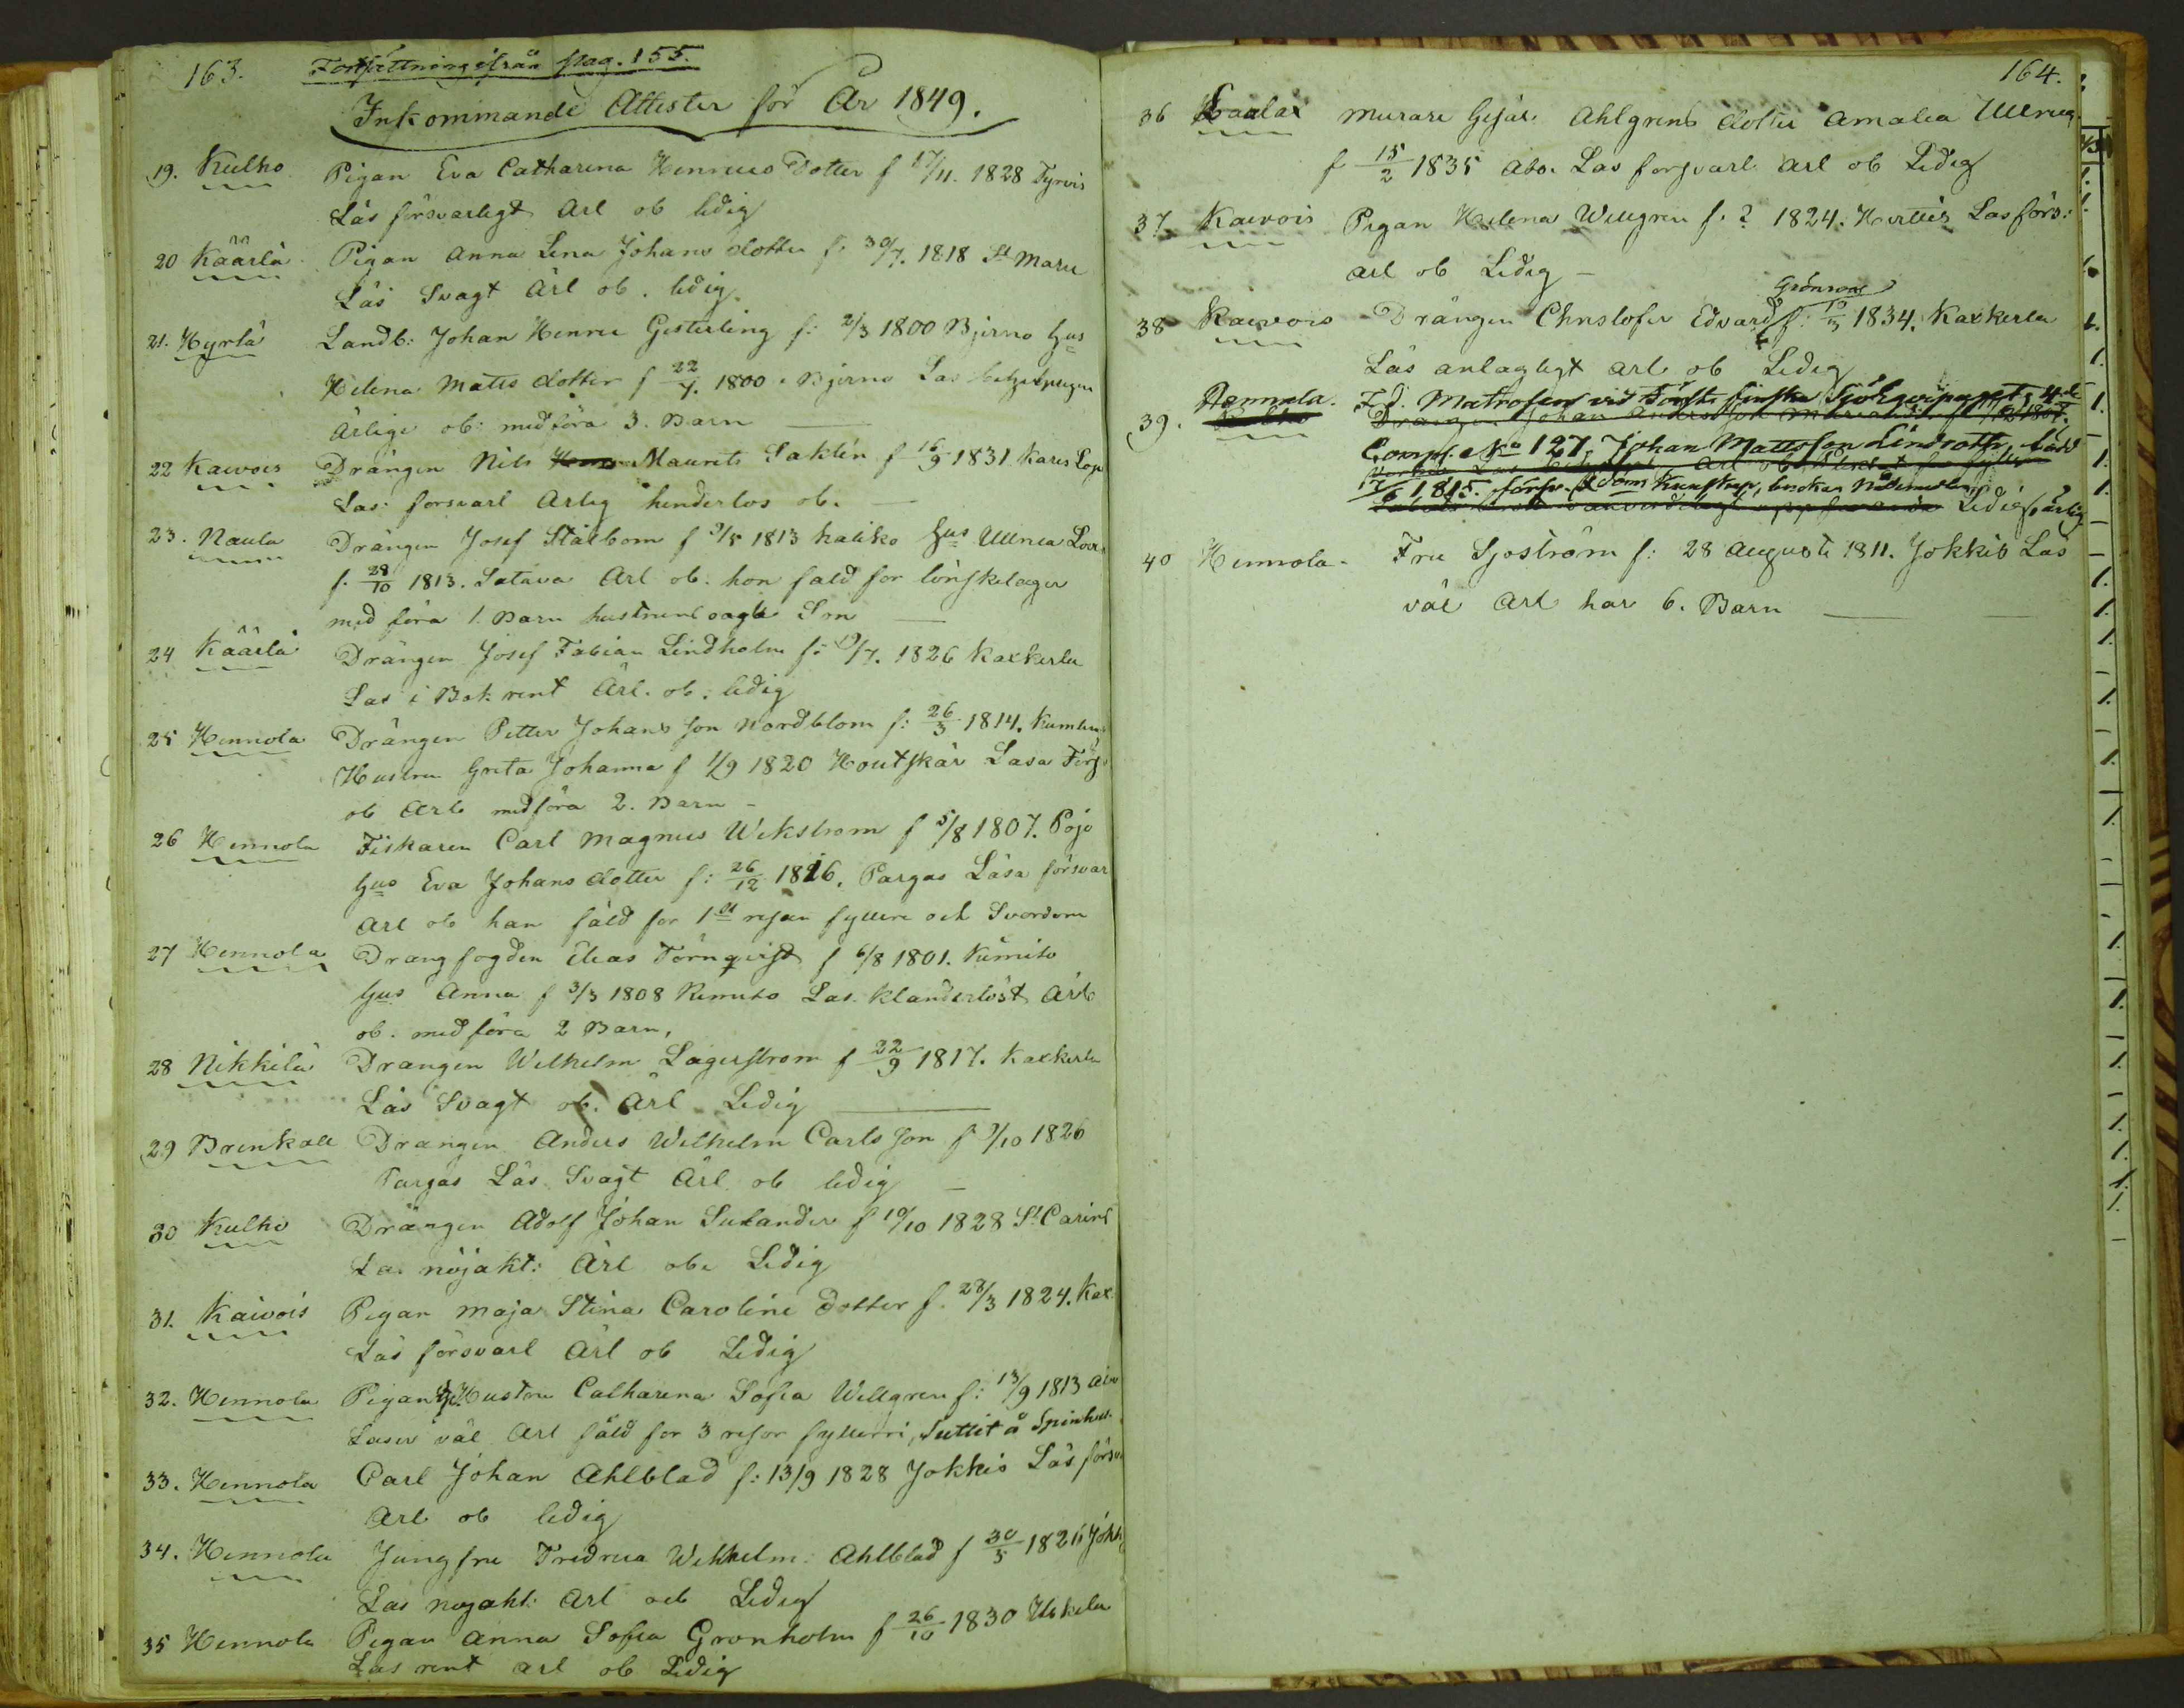 163.
Fortsättning ifrån pag. 155.
Inkommande Attester för År 1849.
19. Kulho Pigan Eva Catharina Henrics Dotter f 17/11. 1828 Tyrvis
Läs försvarligt Ärl ob ledig
20 Käärlä Pigan Anna Lena Johans dotter f: 30/7. 1818 St Marie
Läs Svagt Ärl ob. ledig
21. Hyrlä Landb: Johan Henric Gesterling f: 2/3 1800 Bjerno Hus
Helena Matts dotter f 22/7. 1800. Bjerno Las
Ärlige ob: medföra 3. Barn
22 Kaivois Drängen Nils Maurits Saklin f 16/9 1831 Karis Lojo
Las: forsvarl Ärlig henderlos ob.
23. Naula Drängen Josef Stålbom f 9/5 1813 haliko Hus Ullrica
f. 28/10 1813. Satava Ärl ob. hon fäld for lönskelager
med föra 1. Barn
24 Käärlä Drängen Josef Fabian Lindholm f: 19/7. 1826 Kaxkerla
Las i Bok rent Ärl. ob. ledig
25 Hennola Drängen Petter Johans son Nordblom f: 26/3 1814. Kumling
Hustru Greta Johanna f 1/9 1820 Houtskär Lasa Förs
ob Ärl medföra 2. Barn
26 Hennola Fiskaren Carl Magnus Wikstrom f 5/8 1807. Pojo
Hus Eva Johans dotter f: 26/12 1816. Pargas Läsa försvar
Ärl ob han fäld for 1sta resan fylleri och Svordom
27 Hennola Drangfogden Elias Törnqvist f 6/8 1801. Kimito
Hus Anna f 3/3 1808 Kimito Las Klanderlöst Ärl
ob. medföra 2 Barn,
28 Nikkilä Drangen Wilhelm Lagerstrom f 22/9 1817. Kaxkerla
Läs Svagt ob. Ärl Ledig
29 Brinkall Drangen Anders Wilhelm Carls son f 9/10 1826
Pargas Läs Svagt Ärl ob ledig
30 Kulho Drängen Adolf Johan Sulander f 10/10 1828 St Carins
Las nöjakt: Ärl ob. Ledig
31. Kaivois Pigan Maja Stina Caroline dotter f. 28/3 1824. Kax
Läs försvarl Ärl ob Ledig
32. Hennola Pigan Hustru Catharina Sofia Willgren f: 13/9 1813 Abo
Laser väl Ärl fäld for 3 resor fylleri, Suttit å Spinhus.
33. Hennola Carl Johan Ahlblad f: 13/9 1828 Jokkis Läs försv
Ärl ob ledig
34. Hennola Jungfru Fredrica Wilhelm: Ahlblad f 30/5 1826 Jokk
Läs nojakt: Arl ob Ledig
35 Hennola Pigan Anna Sofia Gronholm f 26/10 1830 Uskela
Las rent arl ob Ledig
164.
36 Haalax Murare Gesäl. Ahlgrens dotter Amalia Ullrica
f 15/2 1835 Abo. Las forsvarl Arl ob Ledig
37. Kaivois Pigan Helena Willgren f. ? 1824. Hertis Las förs:
arl ob Ledig
Grönroos
38 Kaivois Drängen Christofer Edvard f: 1834. Kaxkerla
Läs anlagligt arl ob Ledig
39. Nemmela. F.d. Matrosen vid Första finska Sjöeqvipaget, 4de
Comp. No 127, Johan Mattsson Lindroth, född
17/6 1815. försv. Xdoms Kunskap, Ledig, ärlig
40 Hennola. Fru Sjoström f: 28 Augusti 1811. Jokkis Läs
väl Arl har 6. Barn